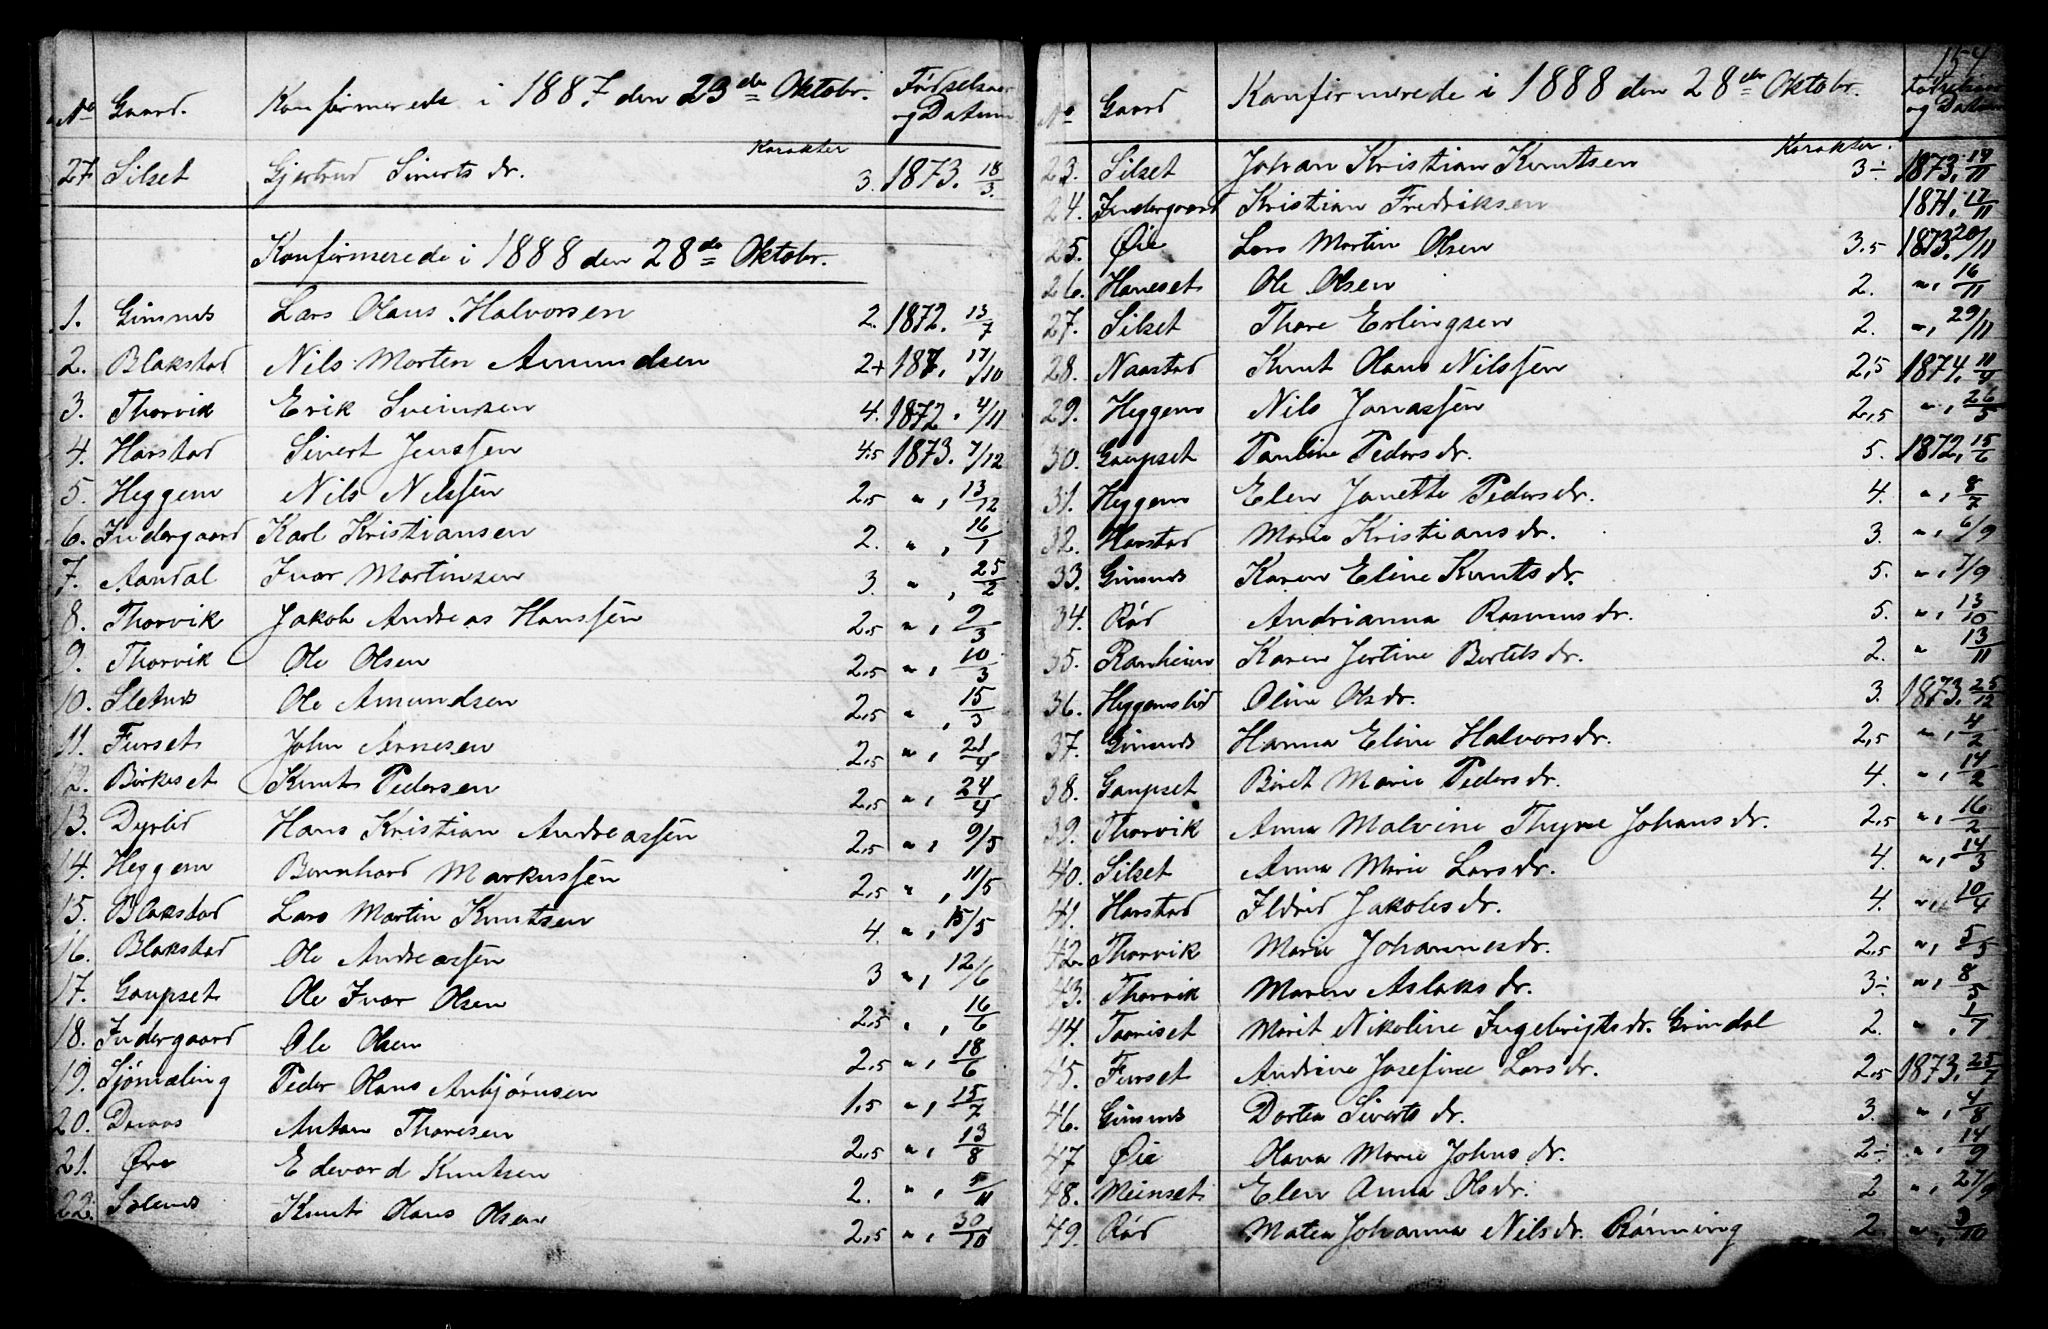 No Gaard. Konfirmerede i 1887 den 23de Oktobr. Fødselsaar og Datum
Karakter
27 Silset Gjertrud Siverts dr. 3. 1873. 18/3
Konfirmerede i 1888 den 28de Oktobr.
1. Gimnes Lars Olaus Halvorsen 2. 1872. 13/7
2. Blakstad Nils Morten Amundsen 2+ 187. 17/10
3. Thorvik Erik Sveinsen 4. 1872. 4/11
4. Harstad Sivert Jenssen 4.5 1873. 7/12
5. Heggem Nils Nilssen 2.5 ", 13/12
6. Indergaard Karl Kristiansen 2. ", 16/1
7. Aandal Ivar Martinsen 3. ", 25/2
8. Thorvik Jakob Andreas Hanssen 2.5 ", 9/3
9. Thorvik Ole Olsen 2.5 ", 10/3
10. Sletnes Ole Amundsen 2,5 ", 15/3
11. Furset John Arnesen 2.5 ", 21/4
12. Birkeset Knut Pedersen 2.5 ", 24/4
13. Dyrlid Hans Kristian Andreassen 2.5 ", 9/5
14. Heggem Bernhard Markussen 2.5 ", 11/5
15. Blakstad Lars Martin Knutsen 4. ", 15/5
16. Blakstad Ole Andreassen 3 ", 12/6
17. Gaupset Ole Ivar Olsen 2.5 ", 16/6
18. Indergaard Ole Olsen 2.5 ", 18/6
19. Sjømæling Peder Hans Anbjørnsen 1,5 ", 15/7
20. Anton Thoresen 2,5 ", 13/8
21. Øre Edevard Knutsen 2. ", 5/11
22. Knut Hans Olsen 2,5 ", 30/10
154
No Gaard Konfirmerede i 1888 den 28de Oktobr. Fødselsaar og Datum
Karakter.
23. Silset Johan Kristian Knutsen 3÷ 1873. 14/11
24. Indergaard Kristian Fredriksen 1871. 17/11
25. Øie Lars Martin Olsen 3.5 1873. 20/11
26. Haneset Ole Olsen 2. ", 16/11
27. Silset Thore Erlingsen 2. ", 29/11
28. Naastad Knut Olaus Nilssen 2,5 1874. 11/4
29. Heggem Nils Jonassen 2,5 ", 26/5
30. Gaupset Pauline Peders dr. 5. 1872, 15/6
31. Heggem Elen Janette Peders dr. 4. ", 8/7
32. Harstad Marie Kristians dr. 3. ", 6/9
33. Gimnes Karen Eline Knuts dr. 5. ", 7/9
34. Rød Andrianna Rasmus dr. 5. ", 13/10
35. Ranheim Karen Jertine Bertels dr. 2. " 13/11
36. Heggemslid Oline Ols dr. 3. 1873. 25/12
37. Gimnes Hanna Eline Halvors dr. 2,5 ", 4/2
38. Gaupset Beret Marie Peders dr. 4. ", 14/2
39. Thorvik Anna Malvine Thyne Johans dr. 2,5 ", 16/2
40. Silset Anna Marie Lars dr. 4. ", 14/3
41. Harstad Ildrid Jakobs dr. 4. ", 10/4
42. Thorvik Marie Johannes dr. 2,5 ", 5/5
43. Thorvik Maren Aslaks dr. 3÷ ", 8/5
44. Taariset Marit Nikoline Ingebrigts dr. Grindal 2. ", 1/7
45. Furset Andrine Josefine Lars dr. 2.5 1873. 25/7
46. Gimnes Dortea Siverts dr. 3. ", 4/8
47 Øie Olava Marie Johns dr. 2÷ ", 14/9
48. Meinset Elen Anna Ols dr. 2 ", 27/9
49. Rød Matea Johanna Nils dr. Rønning 2. ", 3/10